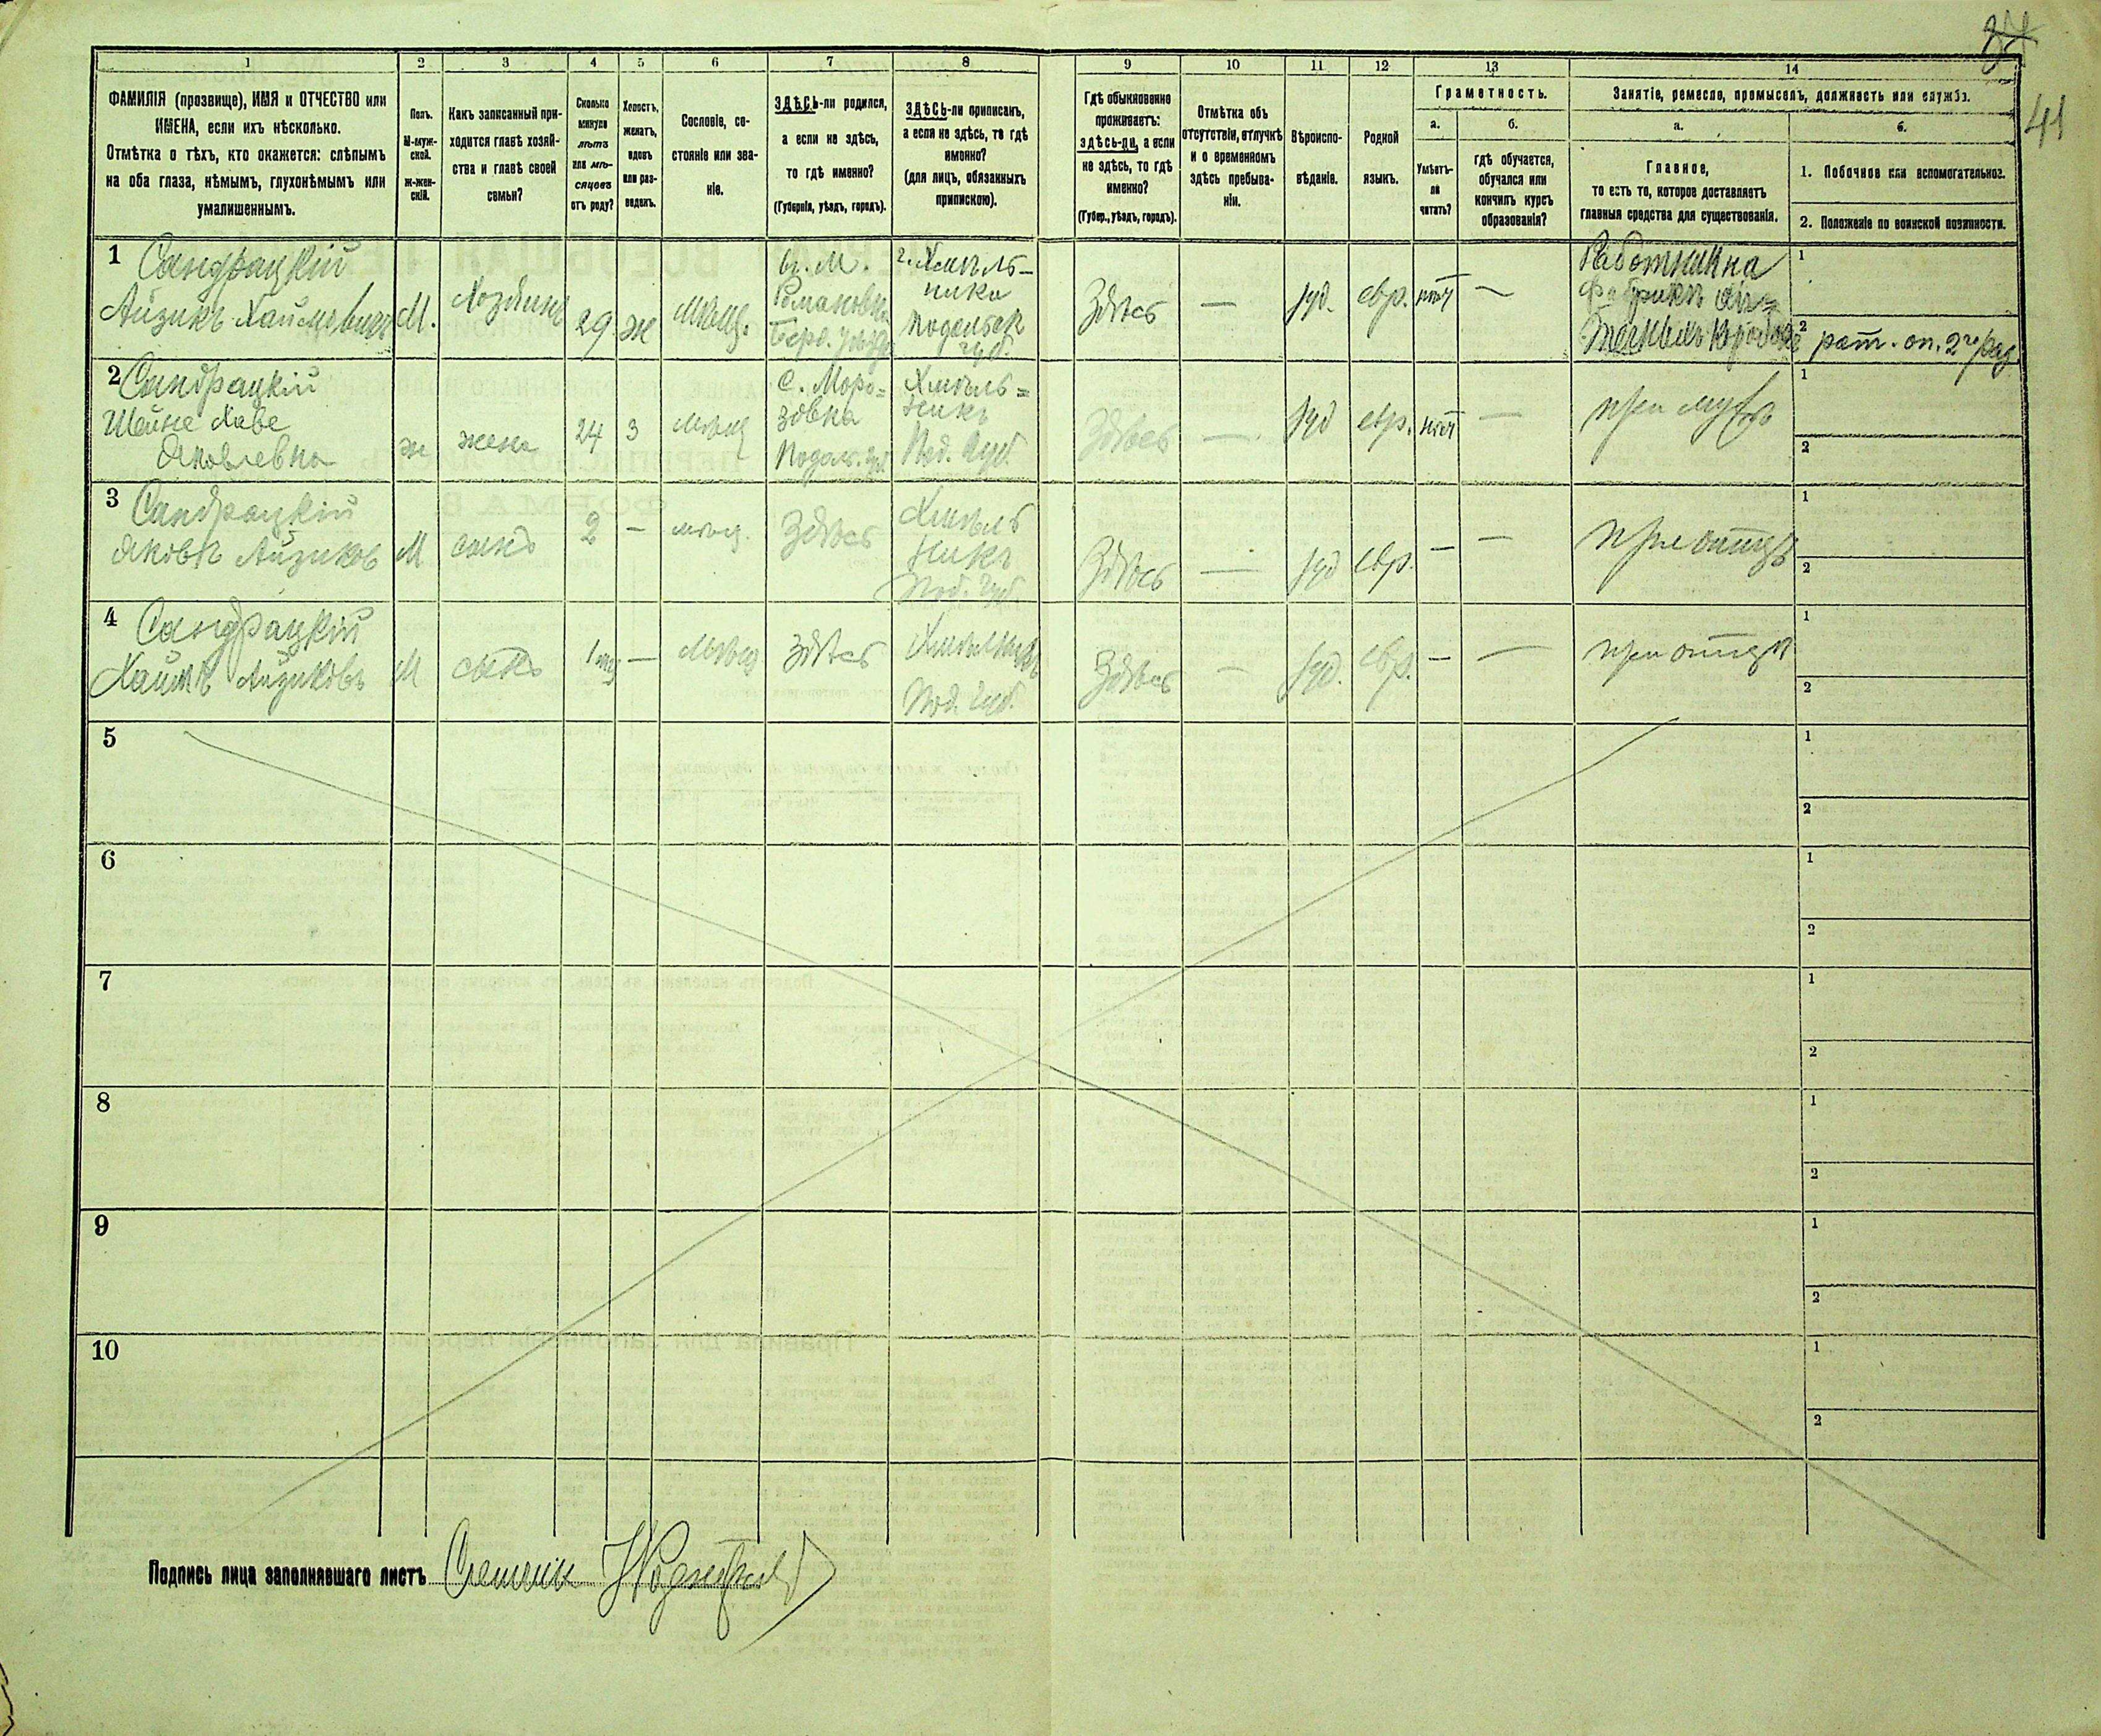 41
1 2 3 4 5 6 7 8 9 10 11 12 13 14
ФАМИЛІЯ (прозвище), ИМЯ и ОТЧЕСТВО или
ИМЕНА, если ихъ нѣсколько.
Отмѣтка о тѣхъ, кто окажется: слѣпымъ
на оба глаза, нѣмымъ, глухонѣмымъ или
умалишеннымъ.
Полъ.
М-муж-
ской.
Ж-жен-
скій.
Какъ записанный при-
ходится главѣ хозяй-
ства и главѣ своей
семьи?
Сколько
минуло
лѣтъ
или мѣ-
сяцевъ
отъ роду?
Холостъ,
женатъ,
вдовъ
или раз-
веденъ.
Сословіе, со-
стояніе или зва-
ніе.
ЗДѢСЬ-ли родился,
а если не здѣсь,
то гдѣ именно?
(Губернія, уѣздъ, городъ).
ЗДѢСЬ-ли приписанъ,
а если не здѣсь, то гдѣ
именно?
(для лицъ, обязанныхъ
припискою).
Гдѣ обыкновенно
проживаетъ:
здѣсь-ли, а если
не здѣсь, то гдѣ
именно?
(Губер., уѣздъ, городъ).
Отмѣтка объ
отсутствіи, отлучкѣ
и о временномъ
здѣсь пребыва-
ніи.
Вѣроиспо-
вѣданіе.
Родной
языкъ.
Грамотность.
а.
Умѣетъ-
ли
читать?
б.
гдѣ обучается,
обучался или
кончилъ курсъ
образованія?
Занятіе, ремесло, промыселъ, должность или служба.
а.
Главное,
то есть то, которое доставляетъ
главныя средства для существованія.
б.
1. Побочное или вспомогательное.
2. Положеніе по воинской повинности.
1 Сандрацкій
Айзикъ Хаймовичъ
М.
Хозяинъ
29
ж
Мѣщ.
въ м.
Романовка
Берд. уѣзд.
г. Хмѣль-
ника
Подольск
губ.
Здѣсь
—
іуд.
евр.
нѣтъ
—
Работникъ на
фабрикѣ
1
2 рат. оп. 2го раз.
2 Сандрацкій
Шейне Хаве
Яковлевна
ж
жена
24
з
мѣщ
с. Моро-
зовка
Подол. губ.
Хмѣль-
никъ
Под. Губ.
Здѣсь
—
іуд
евр.
нѣтъ
—
при мужѣ
1
2
3 Сандрацкій
Яковъ Айзиковъ
М
сынъ
2
—
мѣщ.
Здѣсь
Хмѣль
никъ
Под. Губ.
Здѣсь
—
іуд
евр.
—
—
при отцѣ
1
2
4 Сандрацкій
Хаимъ Айзиковъ
М
сынъ
1 мѣ
—
Мѣщ
здѣсь
Хмѣльникъ
Под. Губ.
Здѣсь
—
іуд.
евр.
—
—
при отцѣ
1
2
5
1
2
6
1
2
7
1
2
8
1
2
9
1
2
10
1
2
Подпись лица заполнявшаго листъ